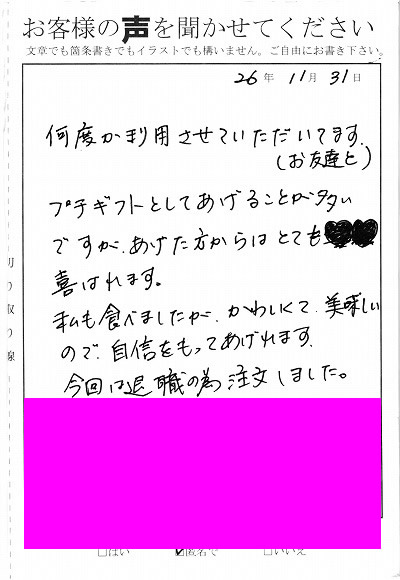 お客様の声を聞かせてください
文章でも箇条書きでもイラストでも構いません。ご自由にお書き下さい。
26年 11月 31日
何度か利用させていただいてます。
(お友達と)
プチギフトとしてあげることが多い
ですが、あげた方からはとても
喜ばれます。
私も食べましたが、かわいくて、美味しい
ので、自信をもってあげれます。
今回は退職の為注文しました。
切り取り線
□はい ☑匿名で □いいえ